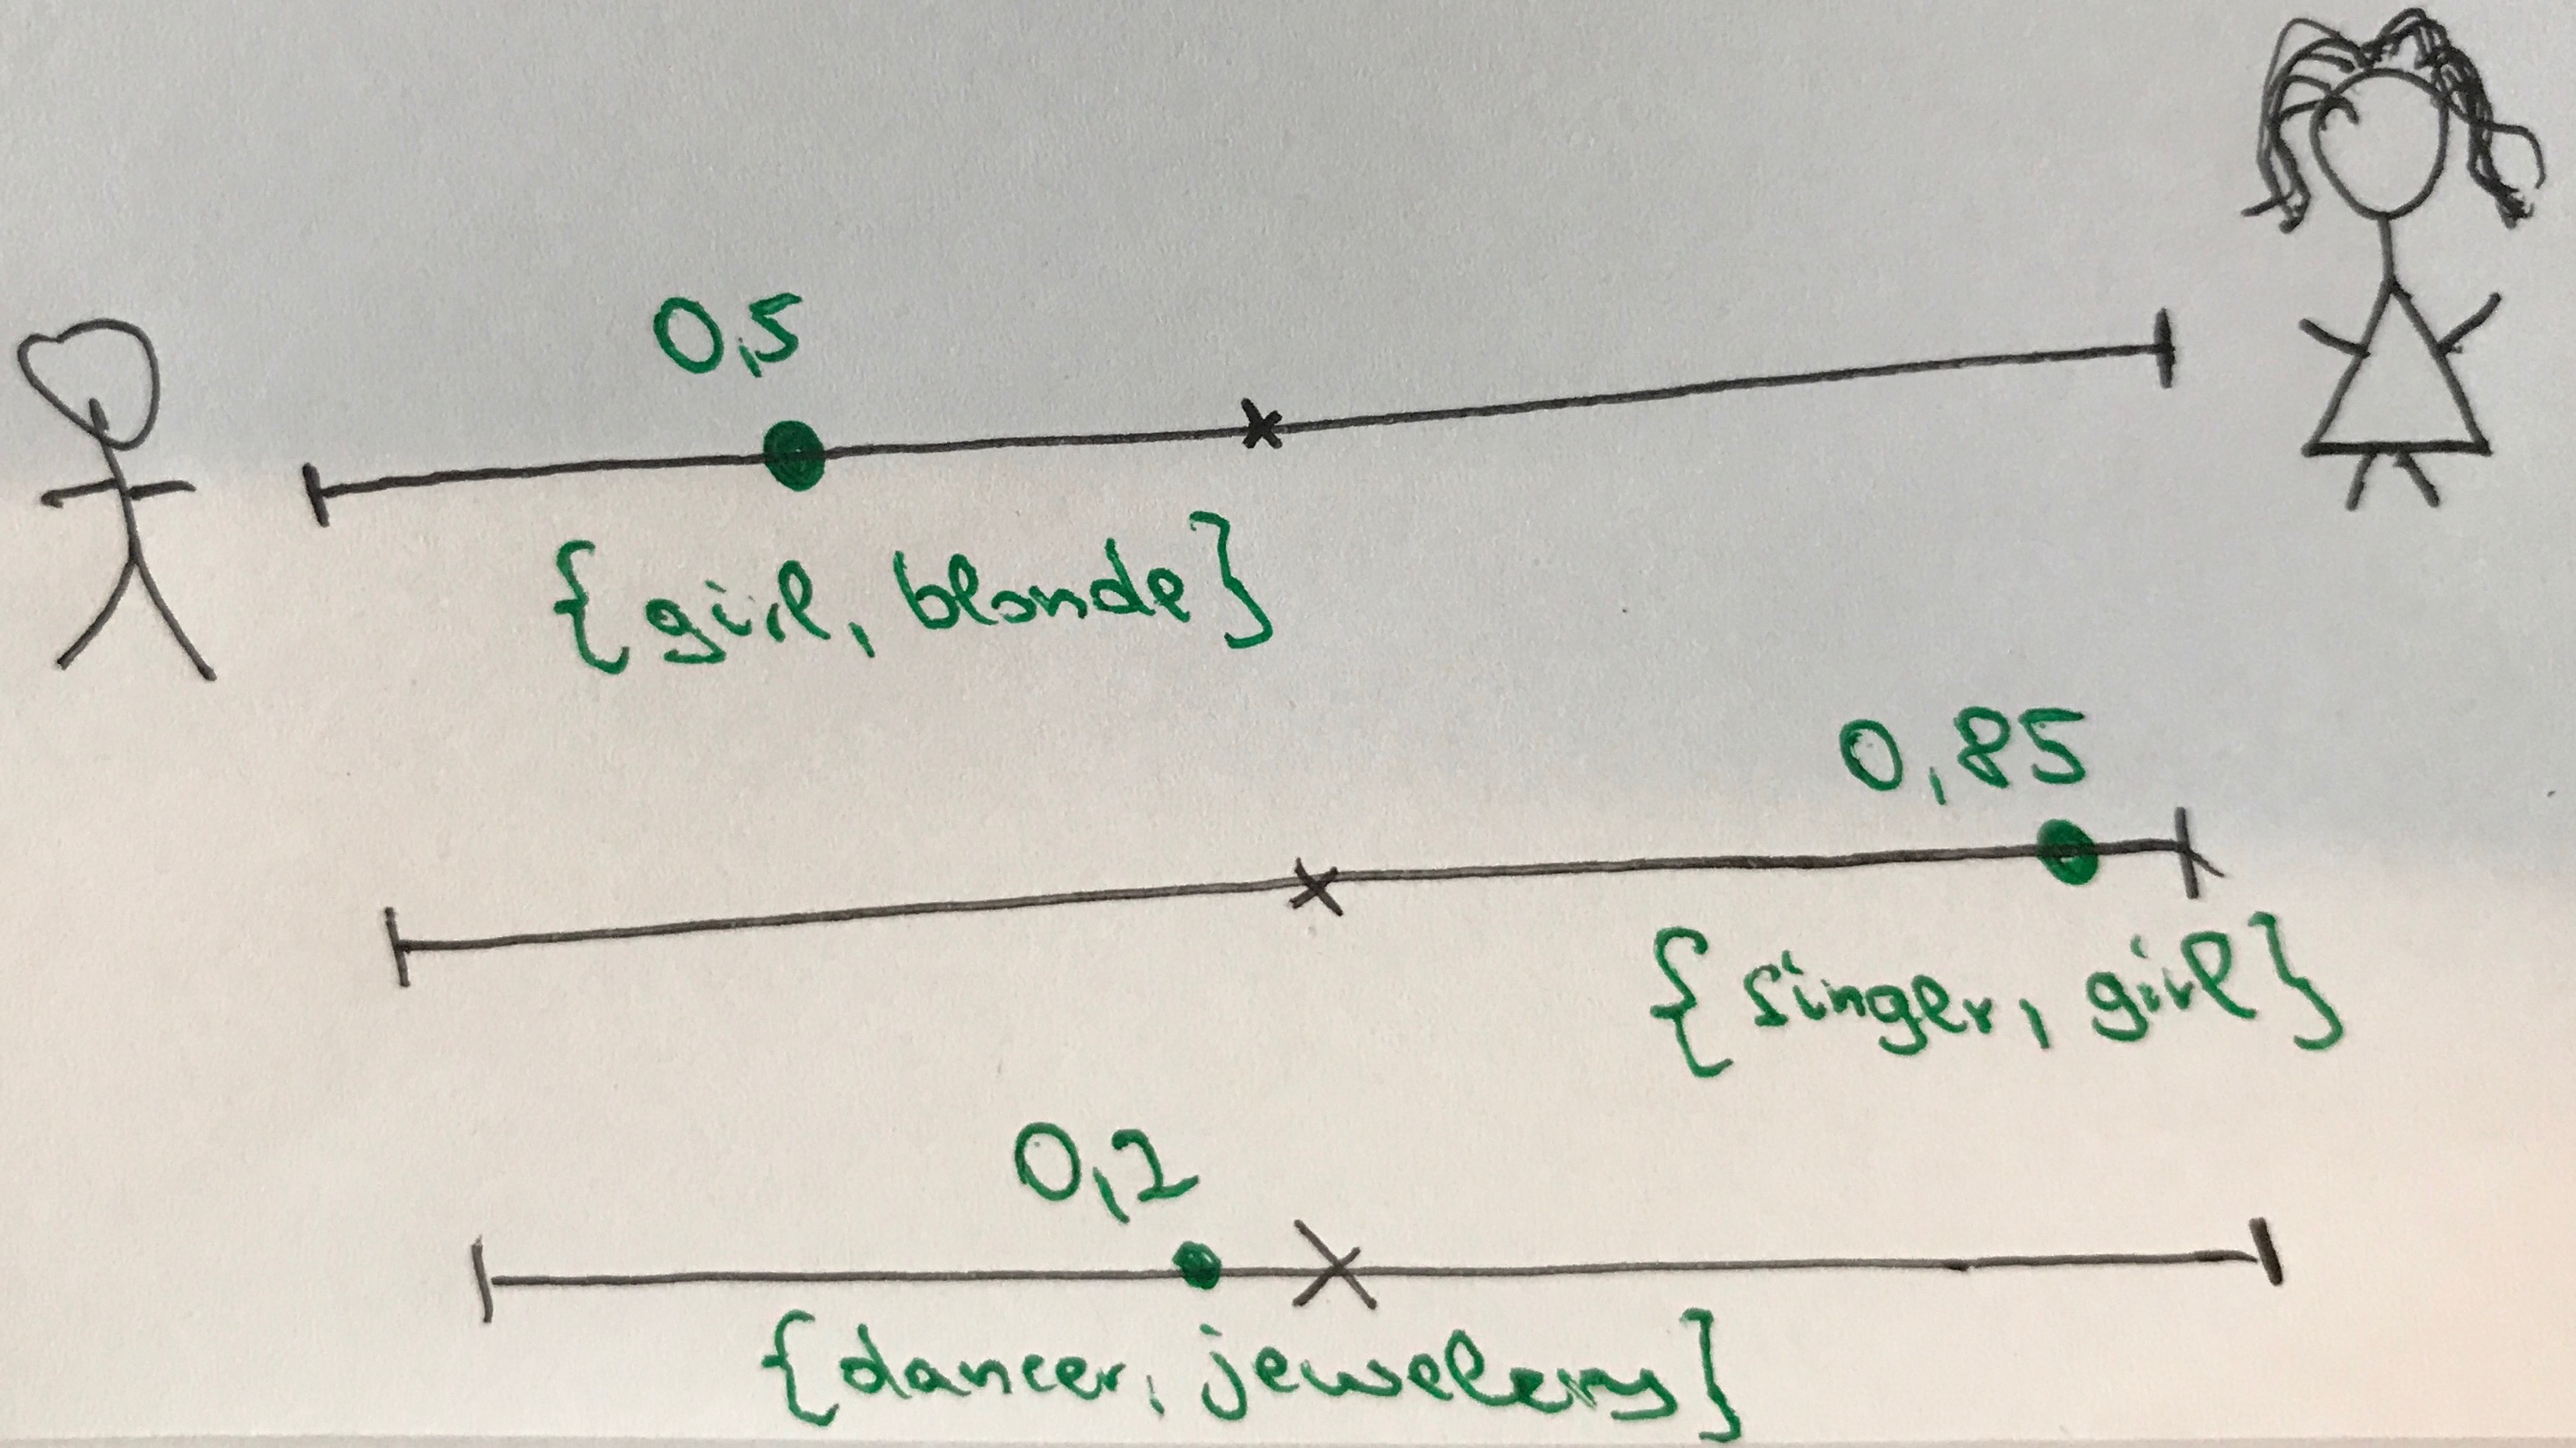 0,5
{girl, blonde}
0,85
{singer, girl}
0,2
{dancer, jewelery}